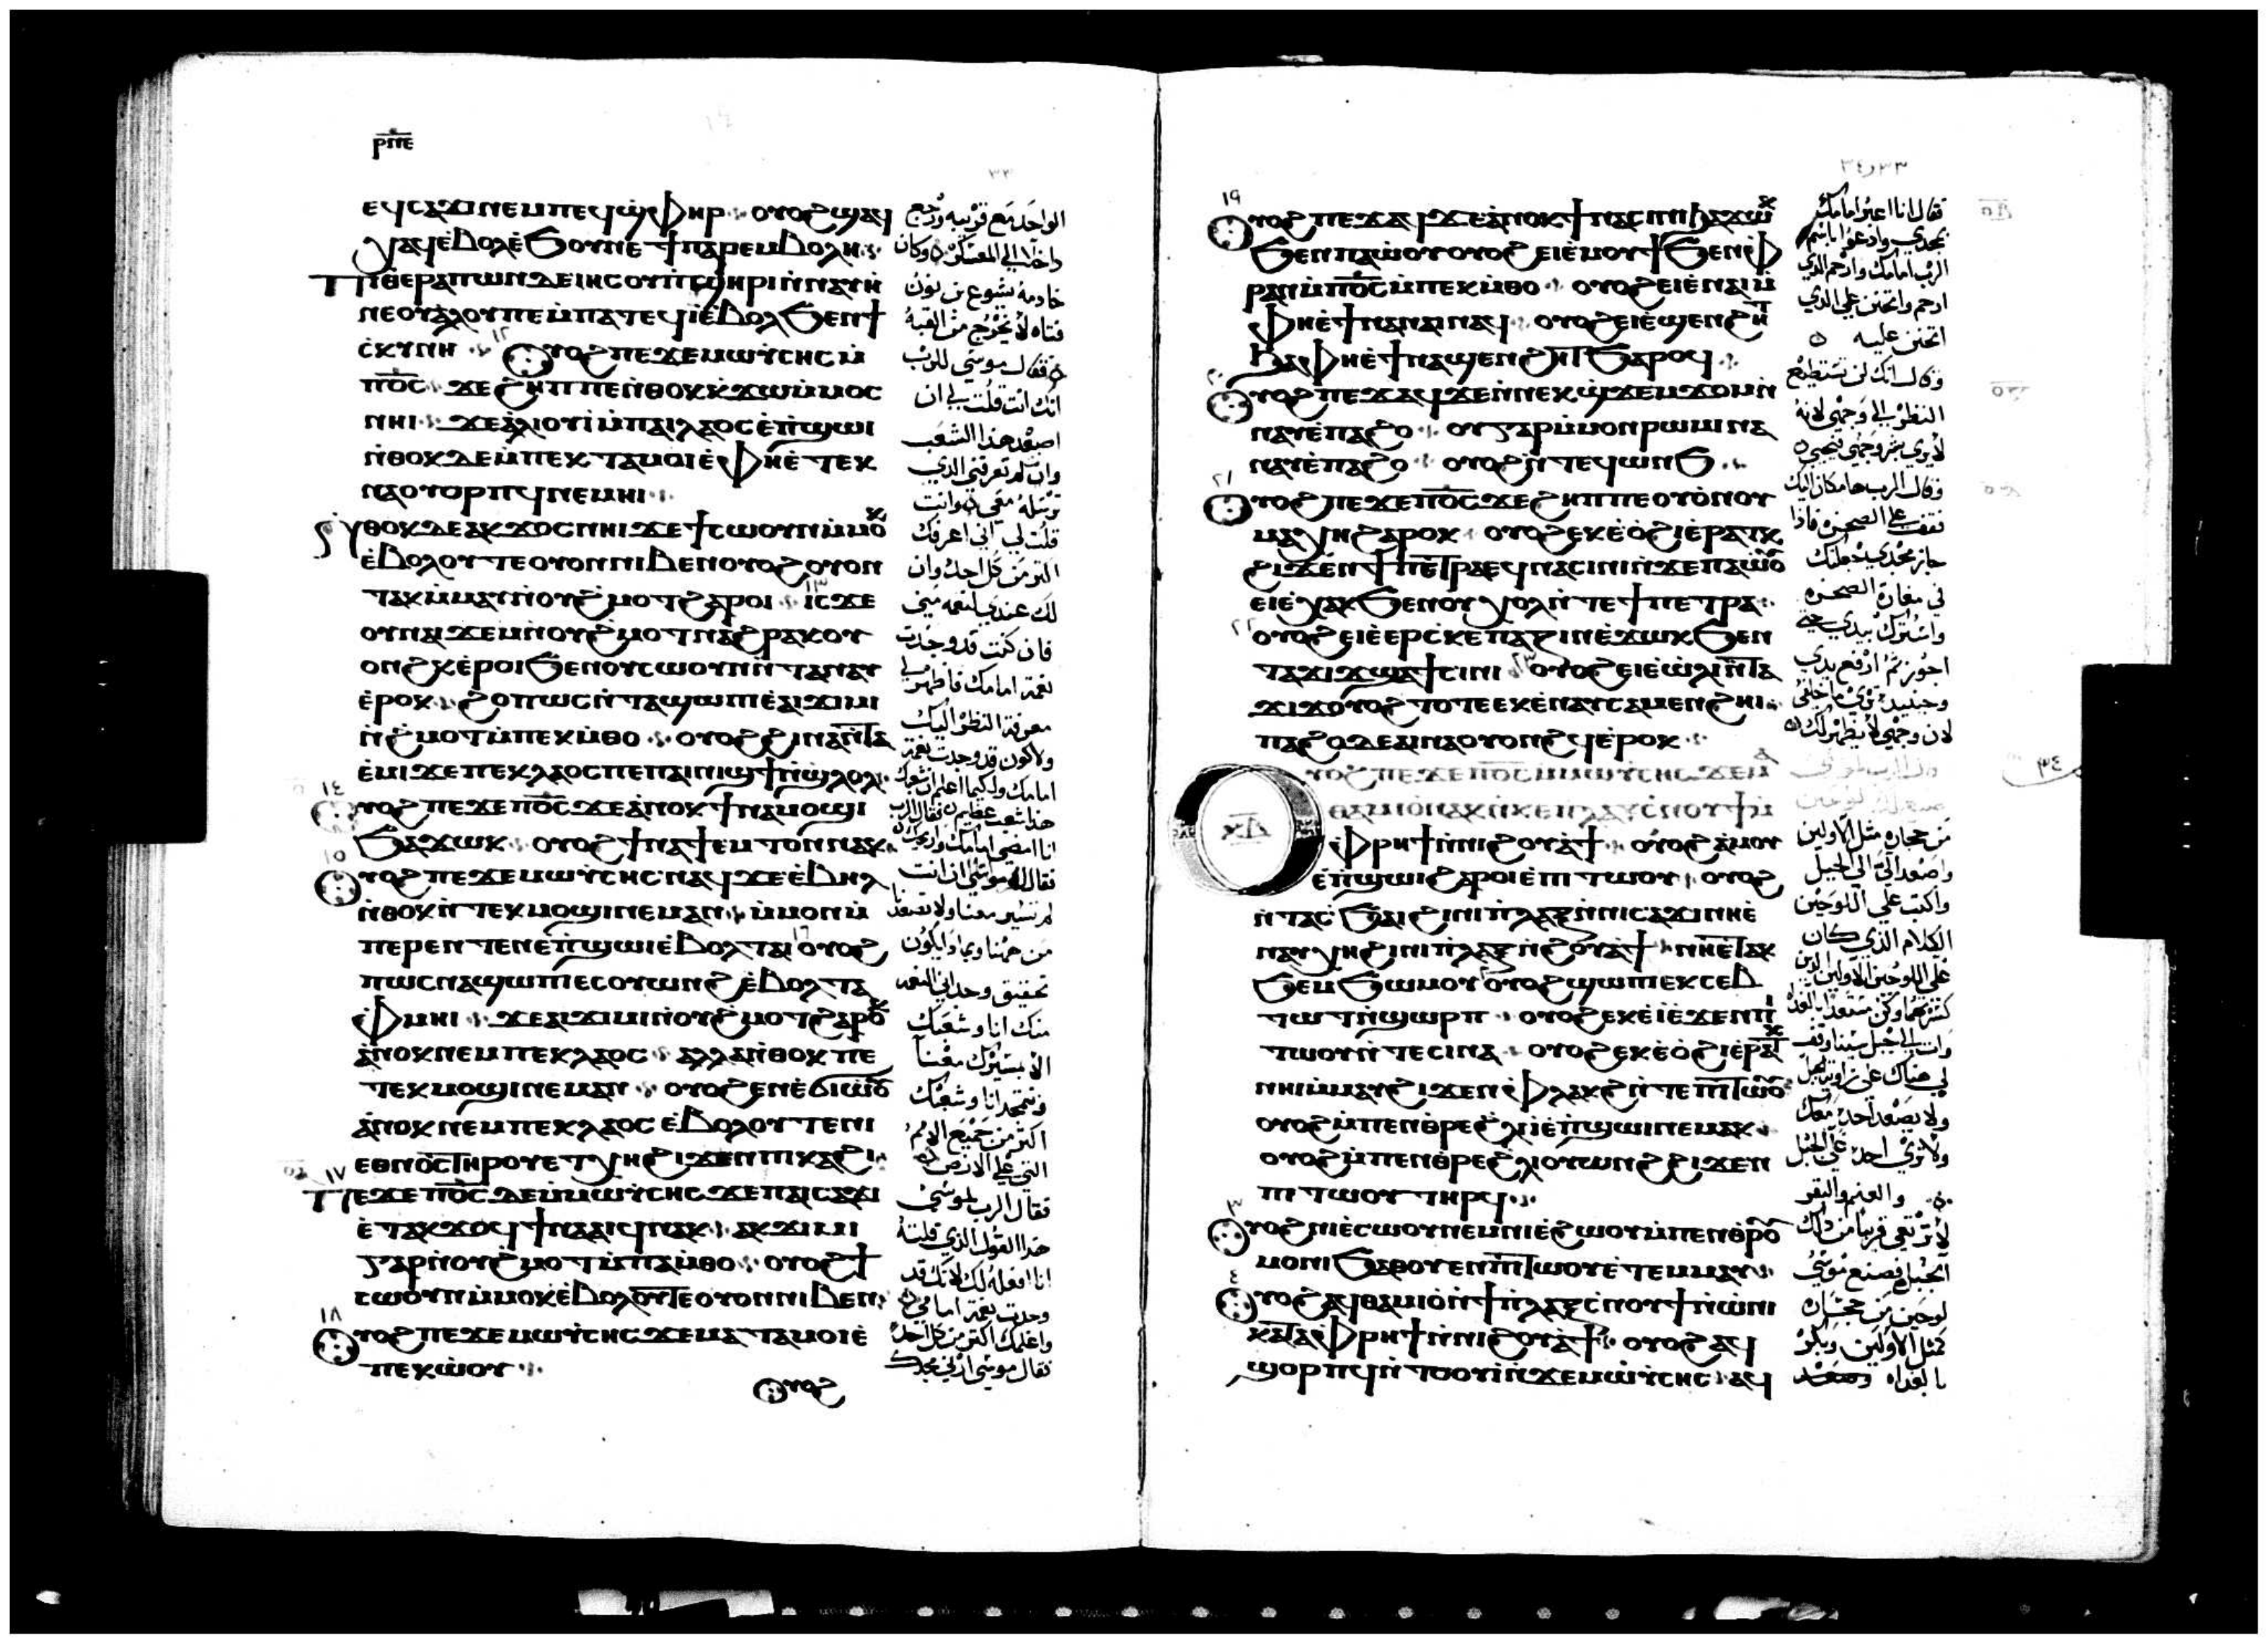 ⲣⲡⲉ
٣٣
ⲉϥⲥⲁϫⲓ ⲛⲉⲙ ⲡⲉϥϣ̀ⲫⲏⲣ ⲟⲩⲟϩ ϣⲁϥ
ⲭⲁϥ ⲉ̀ⲃⲟⲗ ⲉ̀ϧⲟⲩⲛ ⲉ̀ϯⲡⲁⲣⲉⲙⲃⲟⲗⲏ
ⲡⲓⲑⲉⲣⲁⲡⲱⲛ ⲇⲉ ⲓⲏⲥⲟⲩ ⲡ̀ϣⲏⲣⲓ ⲛ̀ⲛⲁⲩⲏ
ⲛⲉ ⲟⲩⲁⲗⲟⲩ ⲡⲉ ⲙ̀ⲡⲁⲧⲉϥⲓ̀ ⲉ̀ⲃⲟⲗ ϧⲉⲛ ϯ
ⲥ̀ⲕⲩⲛⲏ ١٢ ⲟⲩⲟϩ ⲡⲉϫⲉ ⲙⲱⲩⲥⲏⲥ ⲙ̀
ⲡⲟ̅ⲥ̅ ϫⲉ ϩⲏⲡⲡⲉ ⲛ̀ⲑⲟⲕ ⲕ̀ϫⲱ ⲙ̀ⲙⲟⲥ
ⲛⲏⲓ ϫⲉ ⲁ̀ⲗⲓⲟⲩⲓ̀ ⲙ̀ⲡⲁⲓⲗⲁⲟⲥ ⲉ̀ⲡ̀ϣⲱⲓ
ⲛ̀ⲑⲟⲕ ⲇⲉ ⲙ̀ⲡⲉⲕⲧⲁⲙⲟⲓ ⲉ̀ⲫⲏ ⲉ̀ⲧⲉⲕ
ⲛⲁⲟⲩⲟⲣⲡϥ ⲛⲉⲙⲏⲓ
ⲛ̀ⲑⲟⲕ ⲇⲉ ⲁⲕϫⲟⲥ ⲛⲏⲓ ϫⲉ ϯⲥⲱⲟⲩⲛ ⲙ̀ⲙⲟⲕ
ⲉ̀ⲃⲟⲗⲟⲩⲧⲉ ⲟⲩⲟⲛ ⲛⲓⲃⲉⲛ ⲟⲩⲟϩ ⲟⲩⲟⲛ
ⲧⲁⲕ ⲙ̀ⲙⲁⲩ ⲛ̀ⲟⲩϩ̀ⲙⲟⲧ ϩⲁⲣⲟⲓ ١٣ ⲓⲥϫⲉ
ⲟⲩⲛ ⲁⲓϫⲉⲙ ⲛ̀ⲟⲩϩ̀ⲙⲟⲧ ⲛⲁϩⲣⲁⲕ ⲟⲩ
ⲟⲛϩⲕ ⲉ̀ⲣⲟⲓ ϧⲉⲛ ⲟⲩⲥⲱⲟⲩⲛ ⲛ̀ⲧⲁⲛⲁⲩ
ⲉ̀ⲣⲟⲕ ϩⲟⲡⲱⲥ ⲛ̀ⲧⲁϣⲱⲡⲓ ⲉ̀ⲁⲓϫⲓⲙⲓ
ⲛ̀ϩ̀ⲙⲟⲧ ⲙ̀ⲡⲉⲕⲙ̀ⲑⲟ ⲟⲩⲟϩ ϩⲓⲛⲁ ⲛ̀ⲧⲁ
ⲉ̀ⲙⲓ ϫⲉ ⲡⲉⲕⲗⲁⲟⲥ ⲡⲉ ⲡⲁⲓⲛⲓϣϯ ⲛ̀ϣ̀ⲗⲟⲗ
١٤ ⲟⲩⲟϩ ⲡⲉϫⲉ ⲡⲟ̅ⲥ̅ ϫⲉ ⲁ̀ⲛⲟⲕ ϯⲛⲁⲙⲟϣⲓ
ϧⲁϫⲱⲕ ⲟⲩⲟϩ ϯⲛⲁϯⲉⲙⲧⲟⲛ ⲛⲁⲕ
١٥ ⲟⲩⲟϩ ⲡⲉϫⲉ ⲙⲱⲩⲥⲏⲥ ⲛⲁϥ ϫⲉ ⲉ̀ⲃⲏⲗ
ⲛ̀ⲑⲟⲕ ⲛ̀ⲧⲉⲕⲙⲟϣⲓ ⲛⲉⲙⲁⲛ ⲙ̀ⲙⲟⲛ ⲙ̀
ⲡⲉⲣⲉⲛⲧⲉⲛ ⲉ̀ⲡ̀ϣⲱⲓ ⲉ̀ⲃⲟⲗ ⲧⲁⲓ ١٦ ⲟⲩⲟϩ
ⲡⲱⲥ ⲛⲁϣⲱⲡ ⲉⲥⲟⲩⲱⲛϩ ⲉ̀ⲃⲟⲗ ⲧⲁ
ⲫ̀ⲙⲏⲓ ϫⲉ ⲁⲓϫⲓⲙⲓ ⲛ̀ⲟⲩϩ̀ⲙⲟⲧ ϩⲁⲣⲟⲕ
ⲁ̀ⲛⲟⲕ ⲛⲉⲙ ⲡⲉⲕⲗⲁⲟⲥ ⲁⲗⲗⲁ ⲛ̀ⲑⲟⲕ ⲡⲉ
ⲧⲉⲕⲙⲟϣⲓ ⲛⲉⲙⲁⲛ ⲟⲩⲟϩ ⲉⲛⲉ̀ϭⲓⲱ̀ⲟⲩ
ⲁ̀ⲛⲟⲕ ⲛⲉⲙ ⲡⲉⲕⲗⲁⲟⲥ ⲉ̀ⲃⲟⲗⲟⲩⲧⲉ ⲛⲓ
ⲉⲑⲛⲟⲥ ⲧⲏⲣⲟⲩ ⲉⲧⲭⲏ ϩⲓϫⲉⲛ ⲡⲓⲕⲁϩⲓ
١٧ ⲡⲉϫⲉ ⲡⲟ̅ⲥ̅ ⲇⲉ ⲙ̀ⲙⲱⲩⲥⲏⲥ ϫⲉ ⲡⲁⲓⲥⲁϫⲓ
ⲉ̀ⲧⲁⲕϫⲟϥ ϯⲛⲁⲁⲓϥ ⲛⲁⲕ ⲁⲕϫⲓⲙⲓ
ⲅⲁⲣ ⲛ̀ⲟⲩϩ̀ⲙⲟⲧ ⲙ̀ⲡⲁⲙ̀ⲑⲟ ⲟⲩⲟϩ ϯ
ⲥⲱⲟⲩⲛ ⲙ̀ⲙⲟⲕ ⲉ̀ⲃⲟⲗⲟⲩⲧⲉ ⲟⲩⲟⲛ ⲛⲓⲃⲉⲛ
١٨ ⲟⲩⲟϩ ⲡⲉϫⲉ ⲙⲱⲩⲥⲏⲥ ϫⲉ ⲙⲁⲧⲁⲙⲟⲓ ⲉ̀
ⲡⲉⲕⲱ̀ⲟⲩ
ⲟⲩⲟϩ
الواحد مع قريبه ورجع
داخلا الي المعسكر وكان
خادمه يشوع بن نون
فتاه لا يخرج من القبة
فقال موسي للرب
انك انت قلت لي ان
اصعد هذا الشعب
وانت لم تعرفني الذي
ترسله معي وانت
قلت لي اني اعرفك
اكثر من كل احد وان
لك عندي نعمه
فان كنت قد وجدت
نعمة امامك فاظهر لي
معرفة النظر اليك
ولاكون قد وجدت نعمة
امامك ولكيما اعلم ان شعبك
هذا شعب عظيم فقال الرب
انا امضي امامك
فقال له موسي ان انت
لم تسير معنا ولا تصعدنا
من ههنا
منك انا وشعبك
الا بمسيرك معنا
ونتمجد انا وشعبك
اكثر من جميع الامم
التي علي الارض
فقال الرب لموسي
هذا القول الذي قلته
انا افعله لك لانك قد
وجدت نعمة امامي
واعلمك اكثر من كل احد
فقال موسي ارني مجدك
٣٣ و٣٤
١٩ ⲟⲩⲟϩ ⲡⲉϫⲁϥ ϫⲉ ⲁ̀ⲛⲟⲕ ϯⲛⲁⲥⲓⲛⲓ ϧⲁϫⲱⲕ
ϧⲉⲛ ⲡⲁⲱ̀ⲟⲩ ⲟⲩⲟϩ ⲉⲓⲉ̀ⲙⲟⲩϯ ϧⲉⲛ ⲫ̀
ⲣⲁⲛ ⲙ̀ⲡⲟ̅ⲥ̅ ⲙ̀ⲡⲉⲕⲙ̀ⲑⲟ ⲟⲩⲟϩ ⲉⲓⲉ̀ⲛⲁⲓ ⲙ̀
ⲫⲏ ⲉ̀ϯⲛⲁⲛⲁⲓ ⲛⲁϥ ⲟⲩⲟϩ ⲉⲓⲉ̀ϣⲉⲛϩⲏⲧ
ϧⲁ ⲫⲏ ⲉ̀ϯⲛⲁϣⲉⲛϩⲏⲧ ϧⲁⲣⲟϥ
٢٠ ⲟⲩⲟϩ ⲡⲉϫⲁϥ ϫⲉ ⲛ̀ⲛⲉⲕϣ̀ϫⲉⲙϫⲟⲙ ⲛ̀
ⲛⲁⲩ ⲉ̀ⲡⲁϩⲟ ⲟⲩ ⲅⲁⲣ ⲙ̀ⲙⲟⲛ ⲣⲱⲙⲓ ⲛⲁ
ⲛⲁⲩ ⲉ̀ⲡⲁϩⲟ ⲟⲩⲟϩ ⲛ̀ⲧⲉϥⲱⲛϧ
٢١ ⲟⲩⲟϩ ⲡⲉϫⲉ ⲡⲟ̅ⲥ̅ ϫⲉ ϩⲏⲡⲡⲉ ⲟⲩⲟⲛ ⲟⲩ
ⲙⲁ ⲭⲏ ϩⲁⲣⲟⲕ ⲟⲩⲟϩ ⲉⲕⲉ̀ⲟ̀ϩⲓ ⲉ̀ⲣⲁⲧⲕ
ϩⲓϫⲉⲛ ϯⲡⲉⲧⲣⲁ ⲉϥⲛⲁⲥⲓⲛⲓ ⲛ̀ϫⲉ ⲡⲁⲱ̀ⲟⲩ
ⲉⲓⲉ̀ⲭⲁⲕ ϧⲉⲛ ⲟⲩⲭⲟⲗ ⲛ̀ⲧⲉ ϯⲡⲉⲧⲣⲁ
٢٢ ⲟⲩⲟϩ ⲉⲓⲉ̀ⲉⲣⲥ̀ⲕⲉⲡⲁⲍⲓⲛ ⲉ̀ϫⲱⲕ ϧⲉⲛ
ⲧⲁϫⲓϫ ϣⲁϯⲥⲓⲛⲓ ٢٣ ⲟⲩⲟϩ ⲉⲓⲉ̀ⲱ̀ⲗⲓ ⲛ̀ⲧⲁ
ϫⲓϫ ⲟⲩⲟϩ ⲧⲟⲧⲉ ⲉⲕⲉ̀ⲛⲁⲩ ⲥⲁⲙⲉⲛϩⲏⲓ
ⲡⲁϩⲟ ⲇⲉ ⲛ̀ⲛⲁⲟⲩⲟⲛϩϥ ⲉ̀ⲣⲟⲕ
ⲟⲩⲟϩ ⲡⲉϫⲉ ⲡⲟ̅ⲥ̅ ⲙ̀ⲙⲱⲩⲥⲏⲥ ϫⲉ ⲙ
ⲑⲁⲙⲓⲟ̀ ⲛⲁⲕ ⲛ̀ⲕⲉⲡⲗⲁⲝ ⲥ̀ⲛⲟⲩϯ ⲙ̀
ⲫ̀ⲣⲏϯ ⲛ̀ⲛⲓϩⲟⲩⲁϯ ⲟⲩⲟϩ ⲁ̀ⲙⲟⲩ
ⲉ̀ⲡ̀ϣⲱⲓ ϩⲁⲣⲟⲓ ⲉ̀ⲡⲓⲧⲱⲟⲩ ⲟⲩⲟϩ
ⲛ̀ⲧⲁⲥ̀ϧⲁⲓ ϩⲓ ⲛⲓⲡ̀ⲗⲁⲝ ⲛ̀ⲛⲓⲥⲁϫⲓ ⲛⲏ ⲉ̀
ⲛⲁⲩⲭⲏ ϩⲓ ⲛⲓⲡ̀ⲗⲁⲝ ⲛ̀ϩⲟⲩⲁϯ ⲛⲏ ⲉ̀ⲧⲁⲕ
ϧⲉⲙϧⲱⲙⲟⲩ ⲟⲩⲟϩ ϣⲱⲡⲓ ⲉⲕⲥⲉⲃ
ⲧⲱⲧ ⲛ̀ϣⲱⲣⲡ ⲟⲩⲟϩ ⲉⲕⲉ̀ⲓ̀ ⲉ̀ϫⲉⲛ ⲡⲓ
ⲧⲱⲟⲩ ⲛ̀ⲧⲉ ⲥⲓⲛⲁ ⲟⲩⲟϩ ⲉⲕⲉ̀ⲟ̀ϩⲓ ⲉ̀ⲣⲁⲧⲕ
ⲛⲏⲓ ⲙ̀ⲙⲁⲩ ϩⲓϫⲉⲛ ⲫ̀ⲗⲁⲕϩ ⲛ̀ⲧⲉ ⲡⲓⲧⲱⲟⲩ
ⲟⲩⲟϩ ⲙ̀ⲡⲉⲛⲑ̀ⲣⲉ ϩ̀ⲗⲓ ⲓ̀ ⲉ̀ⲡ̀ϣⲱⲓ ⲛⲉⲙⲁⲕ
ⲟⲩⲟϩ ⲙ̀ⲡⲉⲛⲑ̀ⲣⲉ ϩ̀ⲗⲓ ⲟⲩⲱⲛϩ ϩⲓϫⲉⲛ
ⲡⲓⲧⲱⲟⲩ ⲧⲏⲣϥ
٣ ⲟⲩⲟϩ ⲛⲓⲉ̀ⲥⲱⲟⲩ ⲛⲉⲙ ⲛⲓⲉ̀ϩⲱⲟⲩ ⲙ̀ⲡⲉⲛⲑ̀ⲣⲟⲩ
ⲙⲟⲛⲓ ϧⲁⲑⲟⲩⲉⲛ ⲡⲓⲧⲱⲟⲩ ⲉ̀ⲧⲉⲙⲙⲁⲩ
٤ ⲟⲩⲟϩ ⲁϥⲑⲁⲙⲓⲟ̀ ⲛ̀ϯⲡ̀ⲗⲁⲝ ⲥ̀ⲛⲟⲩϯ ⲛ̀ⲱ̀ⲛⲓ
ⲕⲁⲧⲁ ⲫ̀ⲣⲏϯ ⲛ̀ⲛⲓϩⲟⲩⲁϯ ⲟⲩⲟϩ ⲁϥ
ϣⲟⲣⲡϥ ⲛ̀ⲧⲟⲟⲩⲓ̀ ⲛ̀ϫⲉ ⲙⲱⲩⲥⲏⲥ ⲁϥ
فقال انا اعبر امامك
بمجدي وادعوا باسم
الرب امامك وارحم الذي
ارحم واتحنن علي الذي
اتحنن عليه
وقال انك لن تستطيع
النظر الي وجهي لانه
لا يري بشر وجهي فيحيي
وقال الرب ها مكان اليك
فتقف علي الصخره فاذا
جاز مجدي
في مغارة الصخره
واسترك بيدي حتي
اجوز ثم ارفع يدي
وحينيذ تري ما خلفي
لان وجهي لا يظهر لك
٣٤
من حجاره مثل الاولين
واصعد الي الي الجبل
واكتب علي اللوحين
الكلام الذي كان
علي اللوحين الاولين الذين
كسرتهما وكن مستعدا بالغداه
وات الي جبل سينا وقف
لي هناك علي زاوية الجبل
ولا يصعد احد معك
ولا يري احد علي الجبل
والغنم والبقر
لا ترتعي قريبا من ذلك
الجبل فصنع موسي
لوحين من حجاره
كمثل الاولين وبكر
بالغداه وصعد